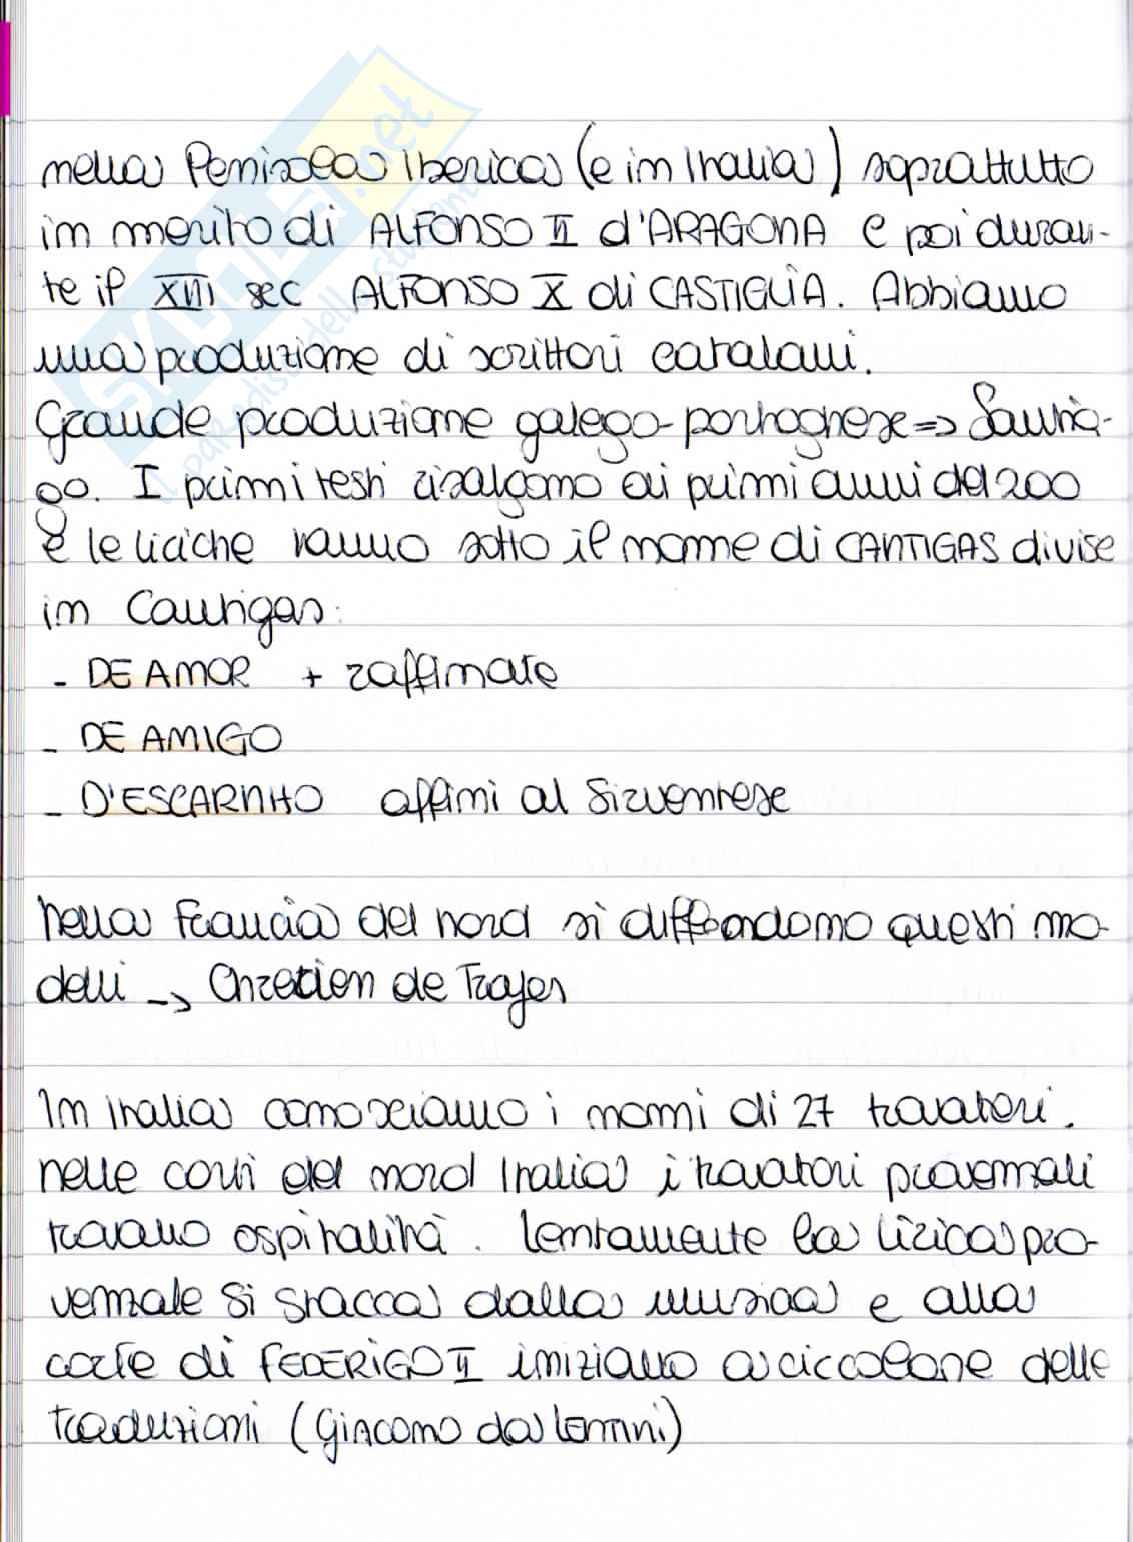 nella Penisola Iberica (e in Italia) soprattutto
in merito di ALFONSO II d'ARAGONA e poi duran-
te il XIII sec ALFONSO X di CASTIGLIA. Abbiamo
una produzione di scrittori catalani.
Grande produzione galego-portoghese => Santia-
go. I primi testi risalgono ai primi anni del 200
e le liriche vanno sotto il nome di CANTIGAS divise
in Cantigas:
- DE AMOR + raffinate
- DE AMIGO
- D'ESCARNHO affini al Sirventese
nella Francia del nord si diffondono questi mo-
delli -> Chretien de Troyes
In Italia conosciamo i nomi di 27 trovatori.
nelle corti del nord Italia i trovatori provenzali
trovano ospitalità. lentamente la lirica pro-
venzale si stacca dalla musica e alla
corte di FEDERIGO II iniziano a circolare delle
traduzioni (Giacomo da lentini)
SKUOLA.net
il paradiso dello studente